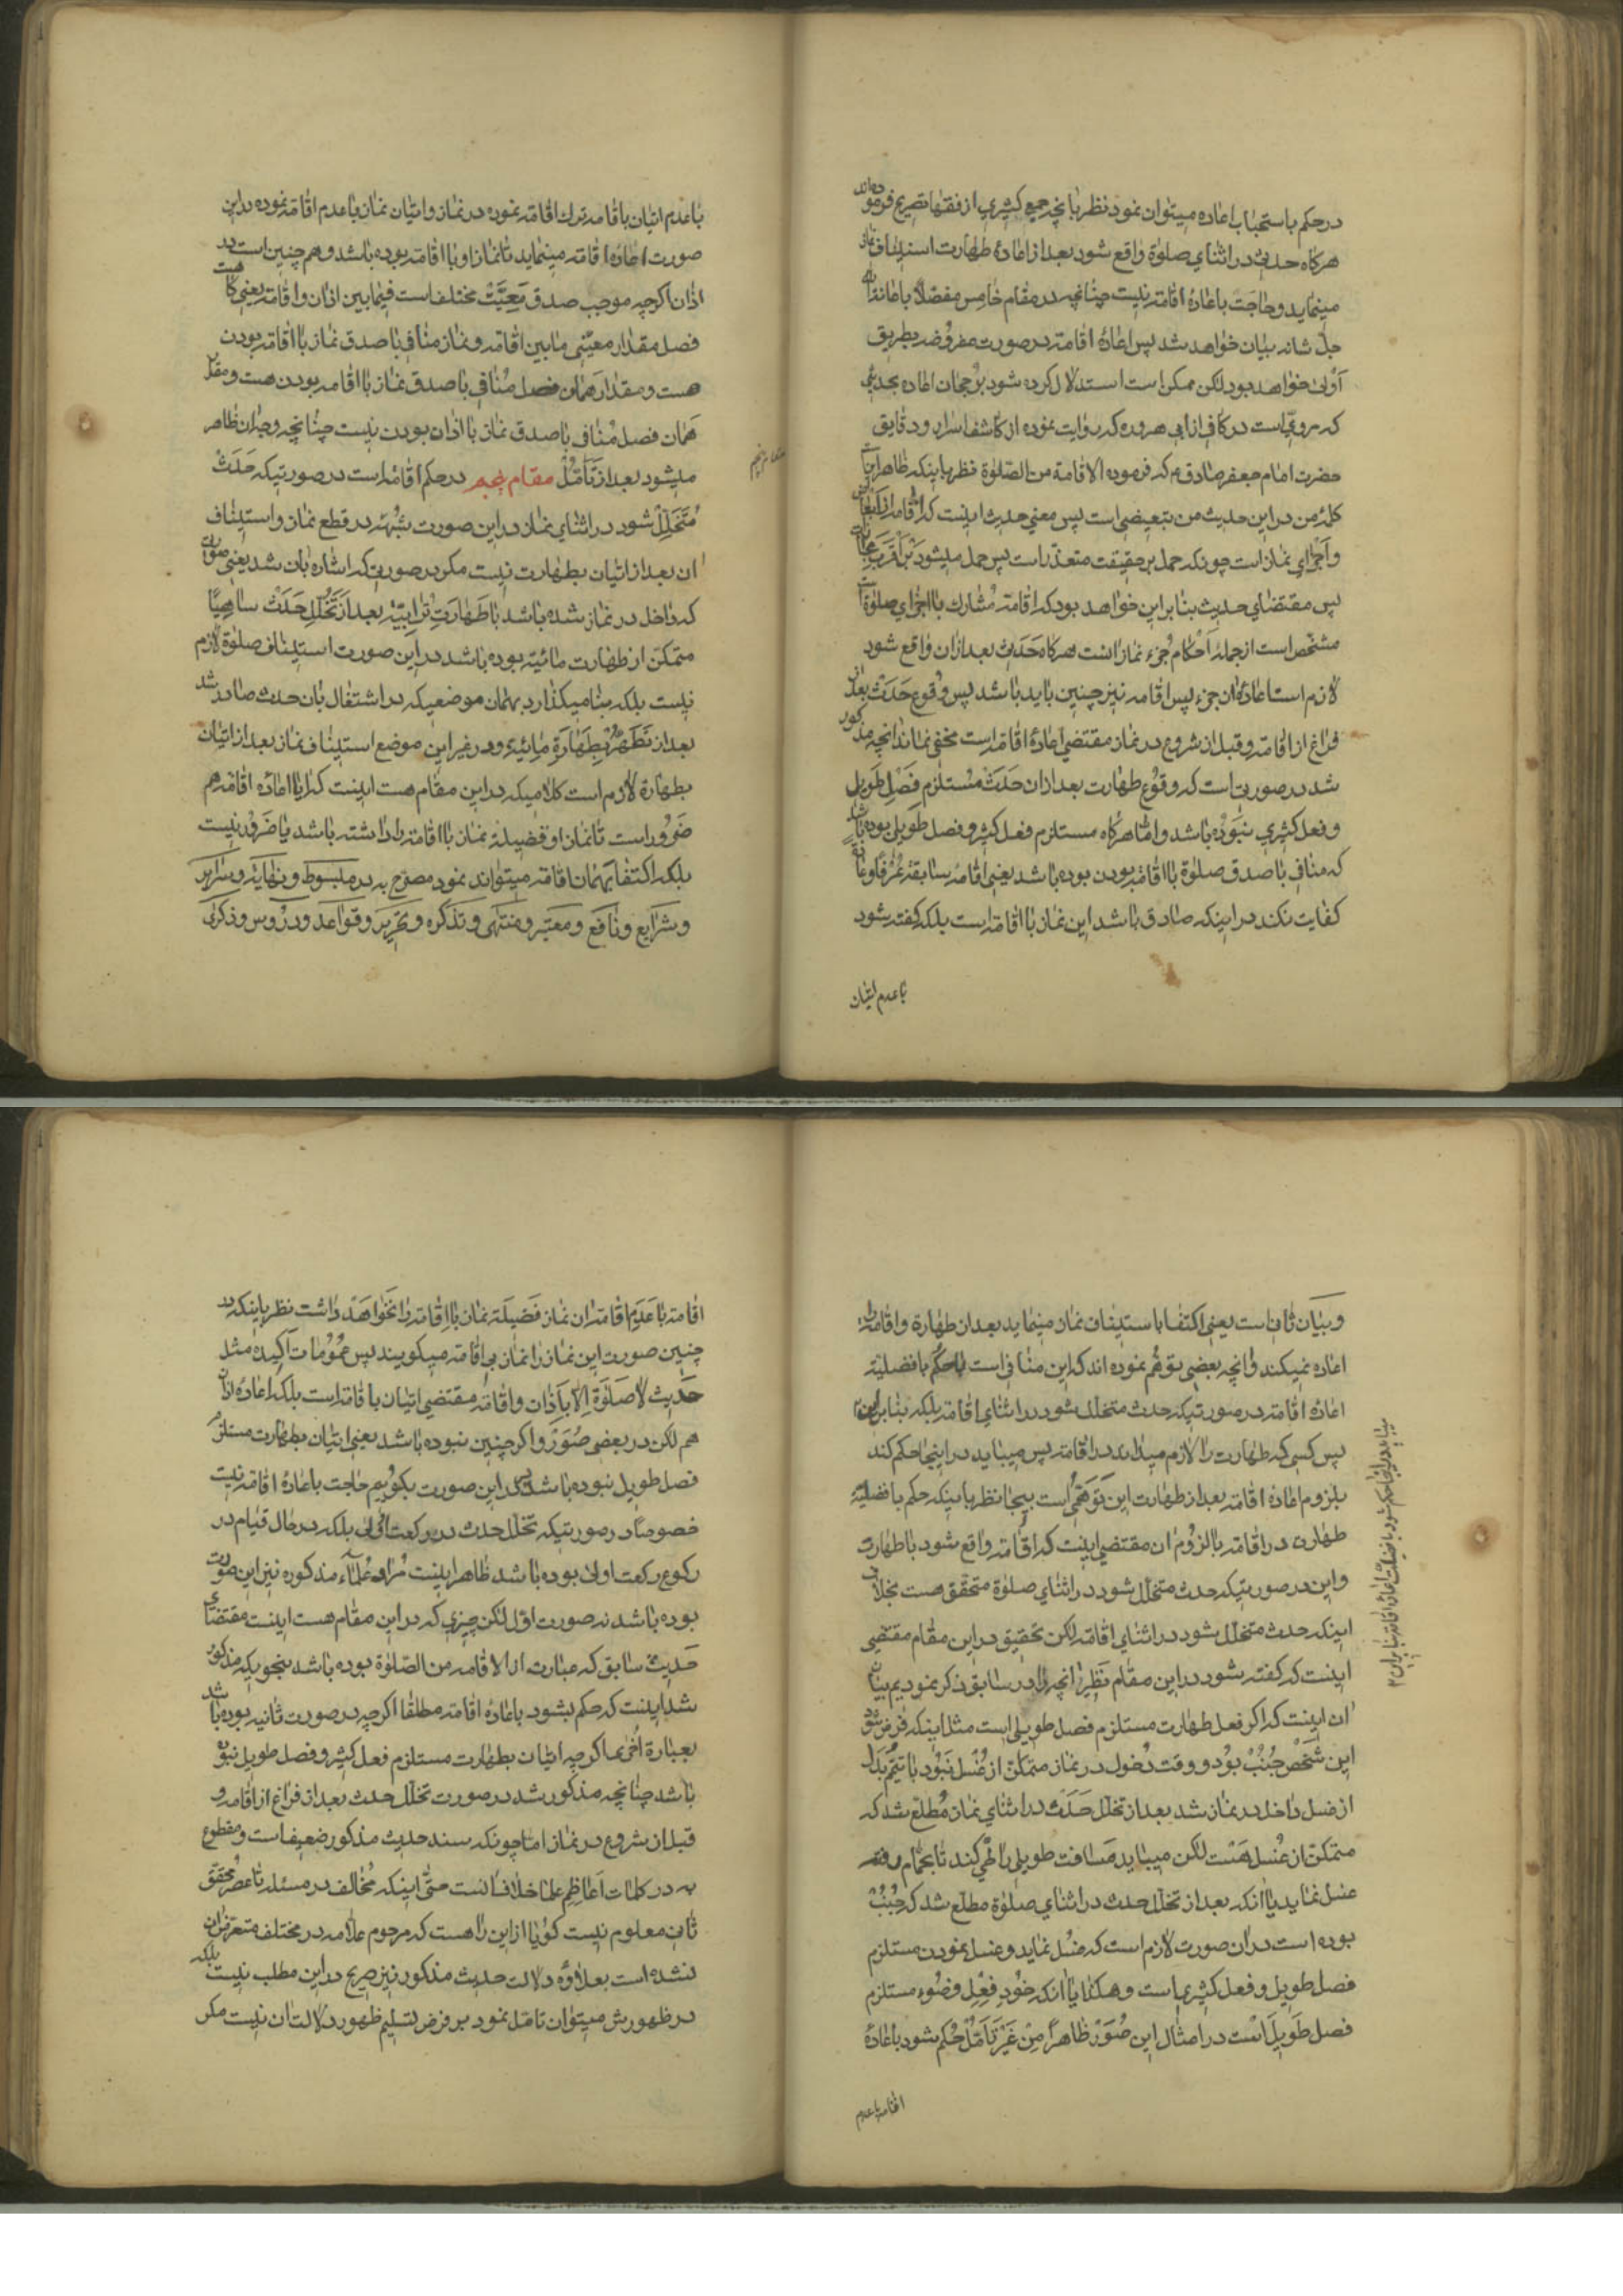 در حکم باستحباب اعاده میتوان نمود نظر بانچه جمع کثیری از فقها تصریح فرموده‌اند
هرکاه حدثی در اثنای صلوة واقع شود بعد از اعادهٔ طهارت استیناف نماز
مینماید و حاجت باعادهٔ اقامه نیست چنانچه در مقام خامس مفصلا باعانة الله
جل شانه بیان خواهد شد پس اعادهٔ اقامه در صورت مفروضه بطریق
اولی خواهد بود لکن ممکن است استدلال کرده شود برجحان اعاده بحدیثی
که مرویست در کافی از ابی هروده که روایت نموده از کاشف اسرار و دقایق
حضرت امام جعفر صادق ع که فرموده الاقامة من الصلوة نظر باینکه ظاهر اینست
کلمهٔ من در این حدیث من تبعیضی است پس معنی حدیث اینست که اقامه از ابعاض
و اجزای نماز است چونکه حمل بر حقیقت متعذر است پس حمل میشود بر اقرب مجازات
پس مقتضای حدیث بنا بر این خواهد بود که اقامه مشارک با اجزای صلوة است
مشخص است از جملهٔ احکام جزء نماز انست هرکاه حدث بعد از ان واقع شود
لازم است اعادهٔ ان جزء پس اقامه نیز چنین باید باشد پس وقوع حدث بعد از
فراغ از اقامه و قبل از شروع در نماز مقتضی اعادهٔ اقامه است مخفی نماند انچه مذکور
شد در صورتی است که وقوع طهارت بعد از ان حدث مستلزم فصل طویل
و فعل کثیری نبوده باشد و اما هرکاه مستلزم فعل کثیر و فصل طویلی بوده باشد
که منافی با صدق صلوة با اقامه بودن بوده باشد یعنی اقامهٔ سابقه عرفا و عادة
کفایت نکند در اینکه صادق باشد این نماز با اقامه است بلکه کفته شود
با عدم اتیان
با عدم اتیان باقامه ترک اقامه نموده در نماز و اتیان نماز با عدم اقامه نموده در این
صورت اعادهٔ اقامه مینماید تا نماز او با اقامه بوده باشد و هم چنین است در
اذان اکرچه موجب صدق معیت مختلف است فیما بین اذان و اقامه یعنی کاه هست
فصل مقدار معینی ما بین اقامه و نماز منافی با صدق نماز با اقامه بودن
هست و مقدار همان فصل منافی با صدق نماز با اقامه بودن هست و مقدار
همان فصل منافی با صدق نماز با اذان بودن نیست چنانچه وجدان ظاهر
میشود بعد از تامل مقام پنجم در حکم اقامه است در صورتیکه حدث
مقام پنجم
متخلل شود در اثنای نماز در این صورت شبهه در قطع نماز و استیناف
ان بعد از اتیان بطهارت نیست مکر در صورتیکه اشاره بان شد یعنی صورت
که داخل در نماز شده باشد با طهارت ترابیه بعد از تخلل حدث ساهیا
متمکن از طهارت مائیه بوده باشد در این صورت استیناف صلوة لازم
نیست بلکه بنا میکذارد بهمان موضعیکه در اشتغال بان حدث صادر شد
بعد از تطهر بطهارة مائیه و در غیر این موضع استیناف نماز بعد از اتیان
بطهارة لازم است کلامیکه در این مقام هست اینست که ایا اعادهٔ اقامه هم
ضرور است تا نماز او فضیلة نماز با اقامه را داشته باشد یا ضرور نیست
بلکه اکتفا بهمان اقامه میتواند نمود مصرح به در مبسوط و نهایه و سرایر
و شرایع و نافع و معتبر و منتهی و تذکره و تحریر و قواعد و دروس و ذکری
و بیان ثانی است یعنی اکتفا باستیناف نماز مینماید بعد از طهارة و اقامه را
اعاده نمیکند و انچه بعضی توهم نموده اند که این منافی است با حکم بافضلیة
اعادهٔ اقامه در صورتیکه حدث متخلل شود در اثنای اقامه بلکه بنا بر این
پس کسی که طهارت را لازم میداند در اقامه پس میباید در اینجا حکم کند
بلزوم اعادهٔ اقامه بعد از طهارت این توهمی است بیجا نظر باینکه حکم بافضلیة
طهارت در اقامه یا لزوم ان مقتضی اینست که اقامه واقع شود با طهارت
و این در صورتیکه حدث متخلل شود در اثنای صلوة متحقق هست بخلاف
اینکه حدث متخلل شود در اثنای اقامه لکن تحقیق در این مقام مقتضی
اینست که کفته شود در این مقام نظیر انچه را در سابق ذکر نمودیم بیان
ان اینست که اکر فعل طهارت مستلزم فصل طویلی است مثل اینکه فرض شود
این شخص جنب بود و وقت دخول در نماز متمکن از غسل نبود با تیمم بدل
از غسل داخل در نماز شد بعد از تخلل حدث در اثنای نماز مطلع شد که
متمکن از غسل هست لکن میباید مسافت طویلی را طی کند تا بحمام رفته
غسل نماید یا انکه بعد از تخلل حدث در اثنای صلوة مطلع شد که جنب
بوده است در ان صورت لازم است که غسل نماید و غسل نمودن مستلزم
فصل طویل و فعل کثیر است و هکذا یا انکه خود فعل وضوء مستلزم
فصل طویل است در امثال این صور ظاهرا من غیر تامل حکم بشود باعادهٔ
اقامه با عدم
اقامه با عدم اقامه ان نماز فضیلة نماز با اقامه را نخواهد داشت نظر باینکه در
چنین صورت این نماز را نماز بی اقامه میکویند پس عمومات اکیده مثل
حدیث لا صلوة الا باذان و اقامه مقتضی اتیان باقامه است بلکه اعادهٔ اذان
هم لکن در بعضی صور و اکر چنین نبوده باشد یعنی اتیان بطهارت مستلزم
فصل طویل نبوده باشد پس در این صورت بکوییم حاجت باعادهٔ اقامه نیست
خصوصا در صورتیکه تخلل حدث در رکعت اولی بلکه در حال قیام در
رکوع رکعت اولی بوده باشد ظاهر اینست مراد علماء مذکوره نیز این صورت
بوده باشد نه صورت اول لکن چیزی که در این مقام هست اینست مقتضای
حدیث سابق که عبارت از الاقامه من الصلوة بوده باشد بنحویکه مذکور
شد اینست که حکم بشود باعادهٔ اقامه مطلقا اکرچه در صورت ثانیه بوده باشد
بعبارة اخری اکرچه اتیان بطهارت مستلزم فعل کثیر و فصل طویل نبوده
باشد چنانچه مذکور شد در صورت تخلل حدث بعد از فراغ از اقامه و
قبل از شروع در نماز اما چونکه سند حدیث مذکور ضعیف است و مقطوع
به در کلمات اعاظم علما خلاف انست حتی اینکه مخالف در مسئله تا عصر محقق
ثانی معلوم نیست کویا از این راهست که مرحوم علامه در مختلف متعرض ان
نشده است بعلاوه دلالت حدیث مذکور نیز صریح در این مطلب نیست بلکه
در ظهورش میتوان تامل نمود بر فرض تسلیم ظهور دلالت ان نیست مکر